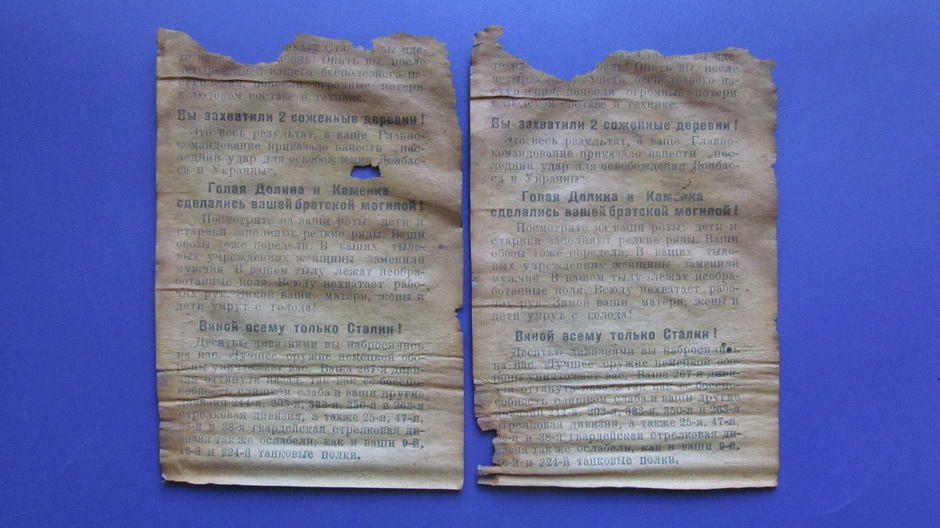 казу Ста вы иде-
те на боль! Опять вы, после
четырех дней вашего бесполезного на-
ступления, понесли огромные потери
в людском составе и технике.
Вы захватили 2 соженные деревни!
Это весь результат, а ваше Главно-
командование приказало нанести „пос-
ледний удар для освобождения Донбас-
са и Украины“.
Голая Долина и Каменка
сделались вашей братской могилой!
Посмотрите на ваши роты: дети и
старики заполняют редкие ряды. Ваши
обозы тоже поредели. В ваших тыло-
вых учреждениях женщины заменили
мужчин. В вашем тылу лежат необра-
ботанные поля. Всюду нехватает рабо-
чих рук. Зимой ваши матери, жены и
дети умрут с голода!
Виной всему только Сталин!
Десятью дивизиями вы набросились
на нас. Лучшее оружие немецкой обо-
роны уничтожает вас. Ваша 267-я диви-
зия оттянута назад, так как ее боеспо-
собность слишком слаба и ваши другие
дивизии 244-я, 203-я, 333-я, 350-я и 263-я
стрелковая дивизия, а также 25-я, 47-я,
35-я и 38-я гвардейская стрелковая ди-
визия также ослабели, как и ваши 9-й,
16-й и 224-й танковые полки.
те на ль! Опять вы, после
четырех вашего бесполезного на-
ступления, понесли огромные потери
в людском составе и технике.
Вы захватили 2 соженные деревни!
Это весь результат, а ваше Главно-
командование приказало нанести „пос-
ледний удар для освобождения Донбас-
са и Украины“.
Голая Долина и Каменка
сделались вашей братской могилой!
Посмотрите на ваши роты: дети и
старики заполняют редкие ряды. Ваши
обозы тоже поредели. В ваших тыло-
вых учреждениях женщины заменили
мужчин. В вашем тылу лежат необра-
ботанные поля. Всюду нехватает рабо-
чих рук. Зимой ваши матери, жены и
дети умрут с голода!
Виной всему только Сталин!
Десятью дивизиями вы набросились
на нас. Лучшее оружие немецкой обо-
роны уничтожает вас. Ваша 267-я диви-
зия оттянута назад, так как ее боеспо-
собность слишком слаба и ваши другие
дивизии 244-я, 203-я, 333-я, 350-я и 263-я
стрелковая дивизия, а также 25-я, 47-я,
35-я и 38-я гвардейская стрелковая ди-
визия также ослабели, как и ваши 9-й,
16-й и 224-й танковые полки.